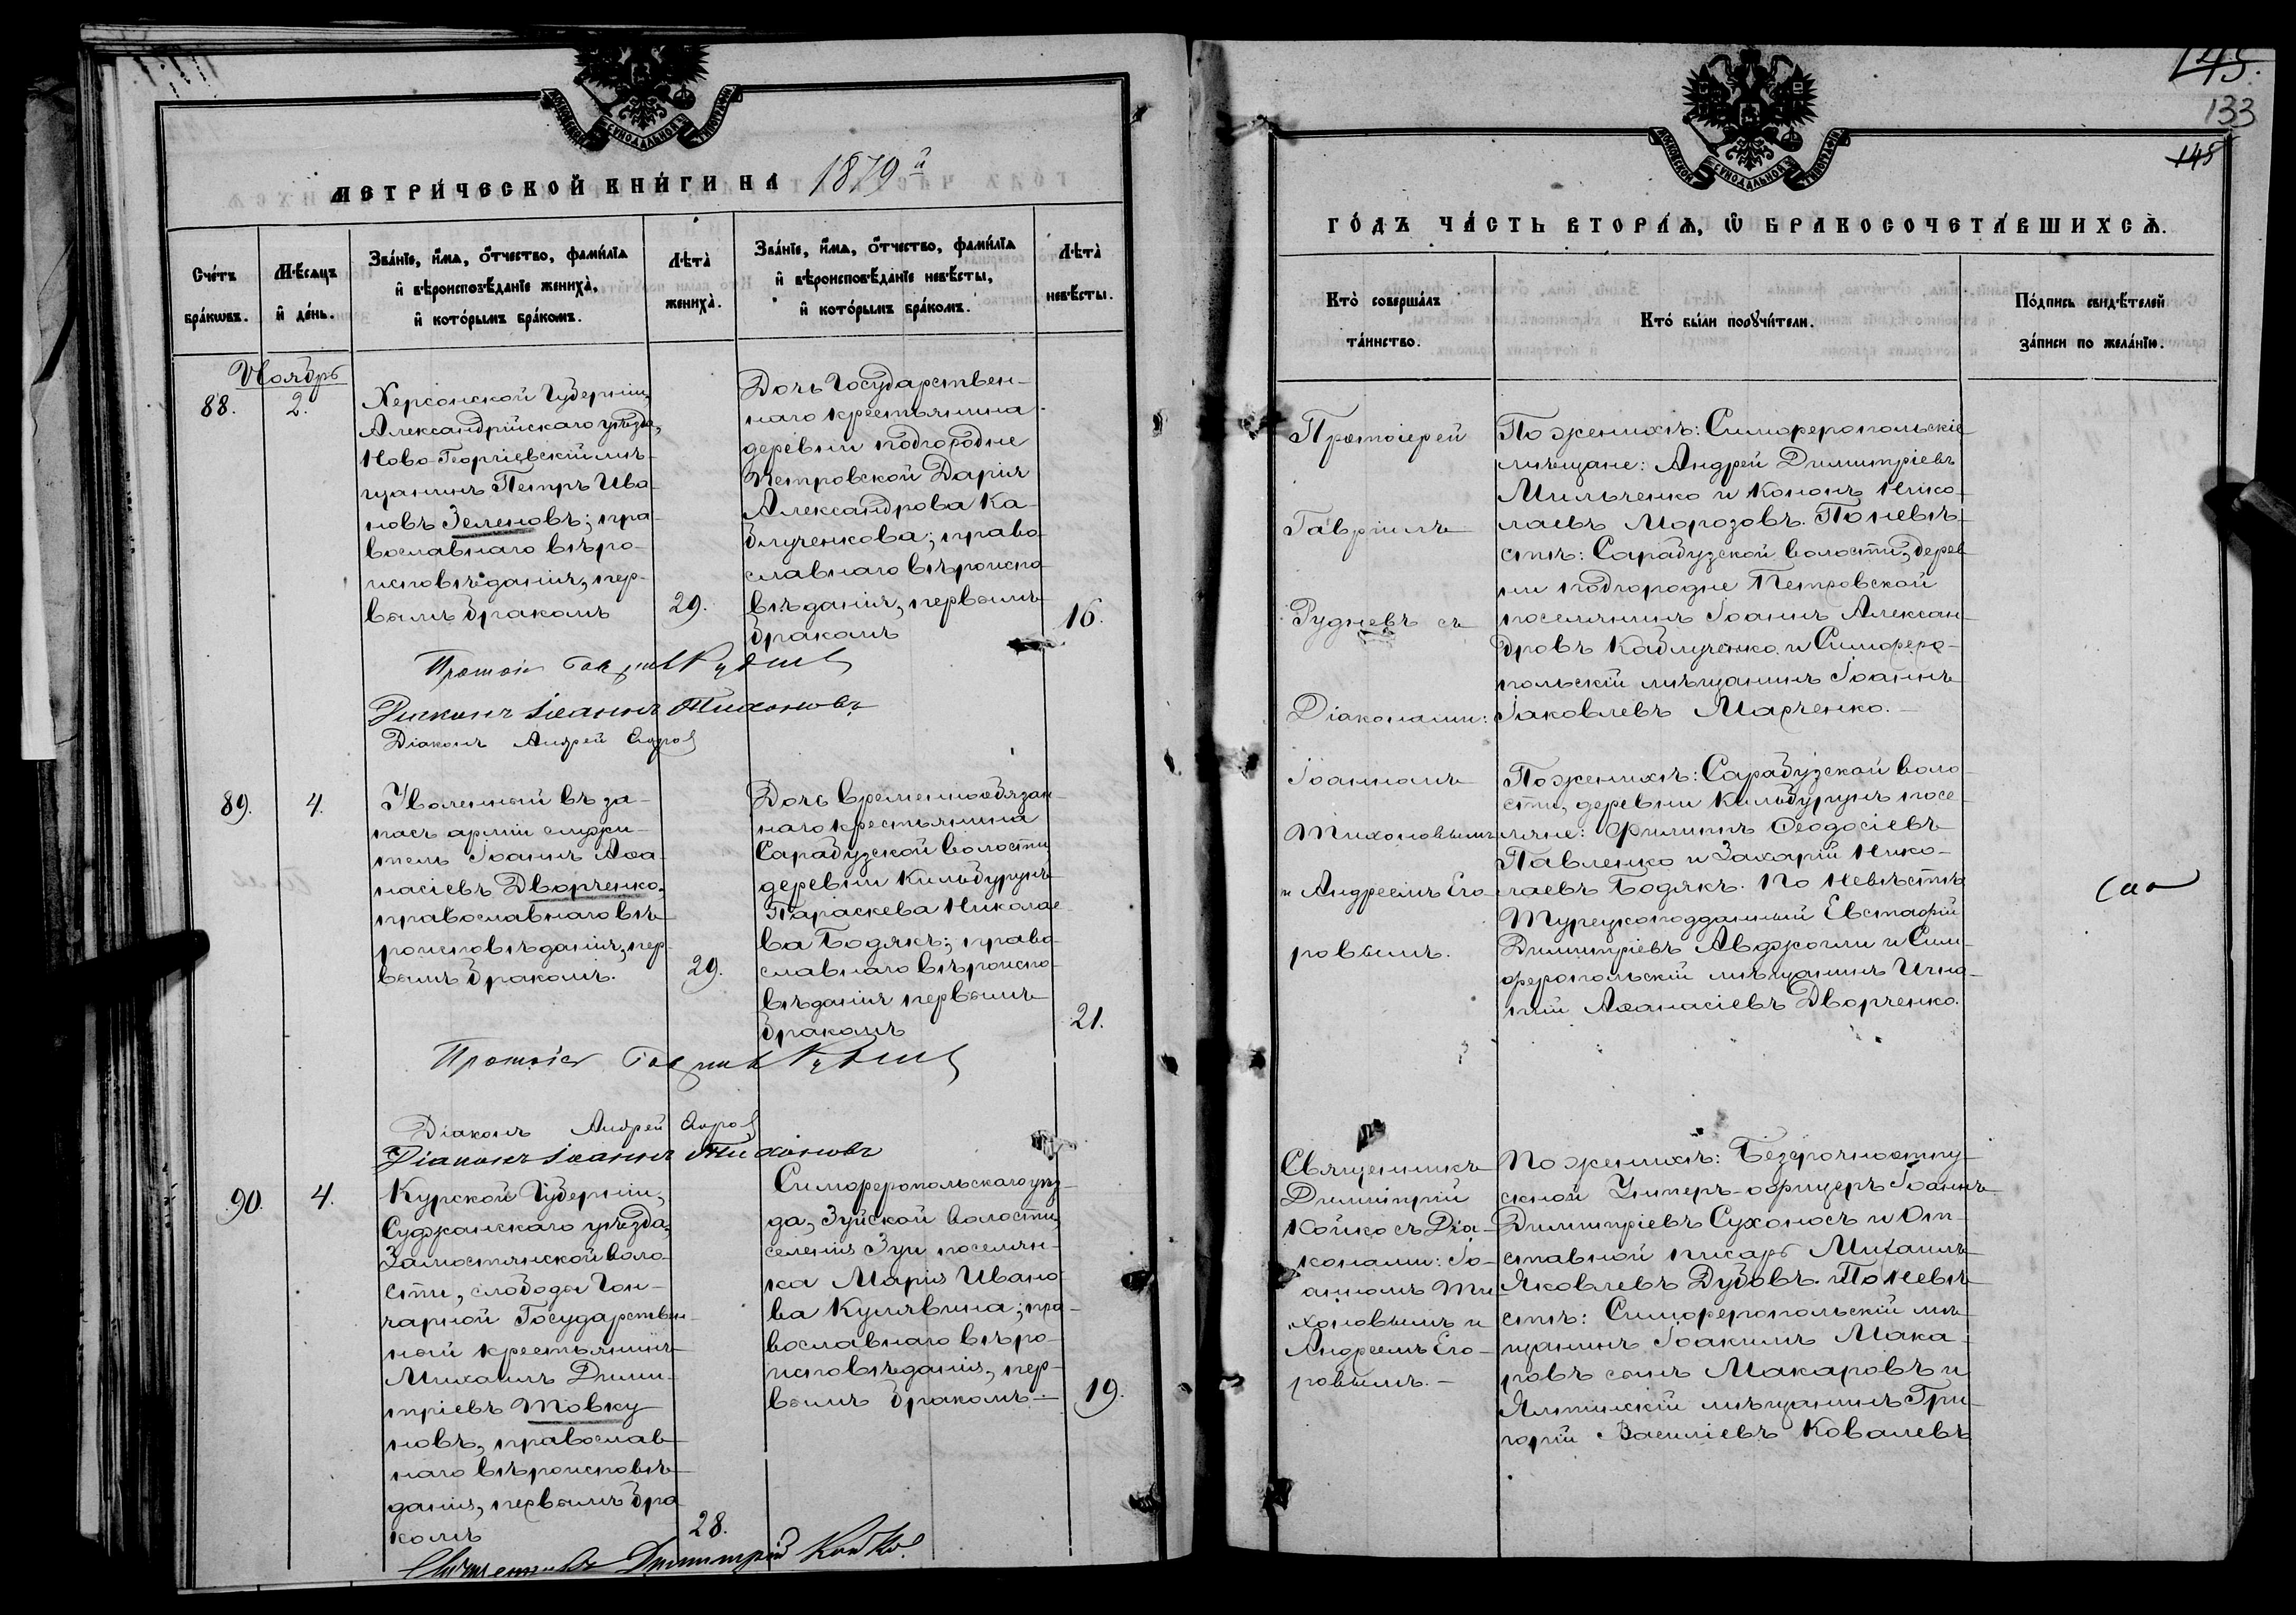 МОСКОВСКОЙ СѴНОДАЛЬНОЙ ТИПОГРАФІИ
МЕТРИ́ЧЕСКОЙ КНИ́ГИ НА 1879й
Сче́тъ
бра́кѡвъ.
Мѣ́сяцъ
и҆ де́нь.
Зва́нїе, и҆́мѧ, ѻ҆́тчество, фами́лїѧ
и҆ вѣроисповѣ́данїе жениха̀,
и҆ кото́рымъ бра́комъ.
Лѣта̀
жениха̀.
Зва́нїе, и҆́мѧ, ѻ҆́тчество, фами́лїѧ
и҆ вѣроисповѣ́данїе невѣ́сты,
и҆ кото́рымъ бра́комъ.
Лѣта̀
невѣ́сты.
Ноябрь
88.
2.
Херсонской Губерніи,
Александрійскаго уѣзда,
Ново-Георгіевскій мѣ-
щанинъ Петръ Ива-
новъ Зеленовъ; пра-
вославнаго вѣро-
исповѣданія, пер-
вымъ бракомъ
29.
Дочь Государствен-
наго крестьянина
деревни подгородне
Петровской Дарія
Александрова Ка-
блученкова; право-
славнаго вѣроиспо-
вѣданія, первымъ
бракомъ
16.
Діаконъ Іоаннъ Тихоновъ
Діаконъ Андрей
89.
4.
Уволенный въ за-
пасъ арміи служи-
тель Іоаннъ Аѳа-
насіевъ Дворченко,
православнаго вѣ-
роисповѣданія, пер-
вымъ бракомъ.
29.
Дочь временнообязан-
наго крестьянина
Сарабузской волости
деревни Кильбурунъ
Параскева Николае-
ва Бодякъ; право-
славнаго вѣроиспо-
вѣданія первымъ
бракомъ
21.
Діаконъ Андрей
Діаконъ Іоаннъ Тихоновъ
90.
4.
Курской Губерніи,
Суджанскаго уѣзда,
Замостянской воло-
сти, слободы Гон-
чарной Государствен-
ный крестьянинъ
Михаилъ Дими-
тріевъ Товку
новъ, православ-
наго вѣроисповѣ-
данія, первымъ бра
комъ
28.
Симферопольскаго уѣз-
да, Зуйской волости,
селенія Зуи поселян-
ка Марія Ивано-
ва Кулявина; пра-
вославнаго вѣро-
исповѣданія, пер-
вымъ бракомъ.
19.
Священникъ Димитрій Койко.
145.
133
145
МОСКОВСКОЙ СѴНОДАЛЬНОЙ ТИПОГРАФІИ
ГО́ДЪ ЧА́СТЬ ВТОРА́Ѧ, Ѡ҆ БРАКОСОЧЕТА́ВШИХСѦ.
Кто̀ соверша́лъ
та́инство.
Кто̀ бы́ли порꙋчи́тели.
По́дпись свидѣ́телей
за́писи по жела́нїю.
Протоіерей
Гавріилъ
Рудневъ съ
Діаконами:
Іоанномъ
Тихоновымъ
и Андреемъ Его-
ровымъ.
По женихѣ: Симферопольскіе
мѣщане: Андрей Димитріевъ
Мильченко и Кононъ Нико-
лаевъ Морозовъ. По невѣ-
стѣ: Сарабузской волости, дерев
ни подгородне Петровской
поселянинъ Іоаннъ Алексан-
дровъ Каблученко и Симферо-
польскій мѣщанинъ Іоаннъ
Іаковлевъ Марченко.
По женихѣ: Сарабузской воло
сти, деревни Кильбурунъ посе-
ляне: Филиппъ Ѳеодосіевъ
Павленко и Захарій Нико-
лаевъ Бодякъ. По невѣстѣ
Турецкоподданный Евстафій
Димитріевъ Авджогли и Сим-
феропольскій мѣщанинъ Игна-
тій Аѳанасіевъ Дворченко.
Священникъ
Димитрій
Койко съ Діа-
конами: Іо-
анномъ Ти-
хоновымъ и
Андреемъ Его-
ровымъ.
По женихѣ: Безсрочноотпу-
скной Унтеръ-офицеръ Іоаннъ
Димитріевъ Сухоносъ и От-
ставной писарь Михаилъ
Яковлевъ Дубовъ. По невѣ-
стѣ: Симферопольскій мѣ-
щанинъ Іоакимъ Мака-
ровъ сынъ Макаровъ и
Ялтинскій мѣщанинъ Гри-
горій Василіевъ Ковалевъ